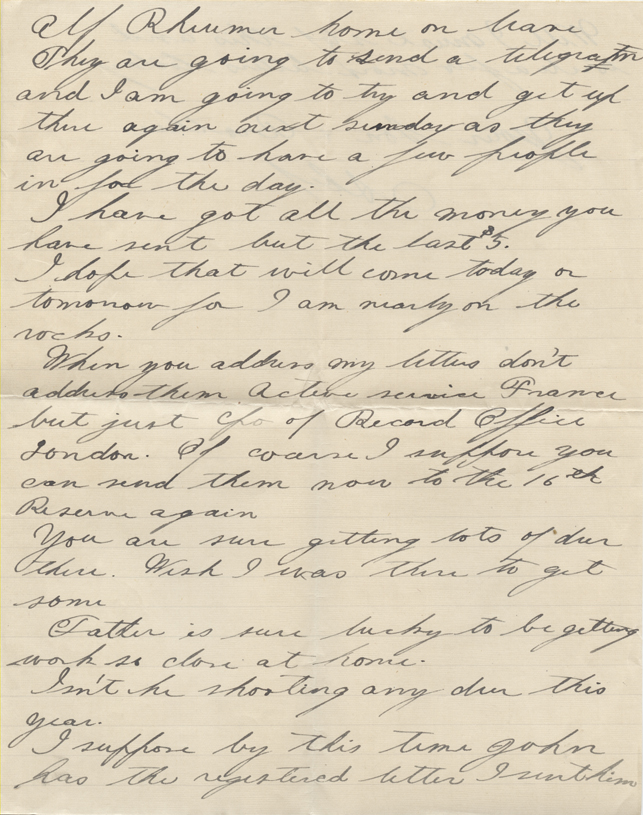 Alf Rheumer home on leave
They are going to send a telegram
and I am going to try and get up
there again next sunday as they
are going to have a few people
in for the day.
I have got all the money you
have sent but the last $5.
I dope that will come today or
tomorrow for I am nearly on the
rocks.
When you address my letters don't
address them Active service France
but just c/o of Record Office
London. Of coarse I suppose you
can send them now to the 16th
Reserve again
You are sure getting lots of deer
there. Wish I was there to get
some
Father is sure lucky to be getting
work so close at home.
Isn't he shooting any deer this
year.
I suppose by this time John
has the registered letter I sent him